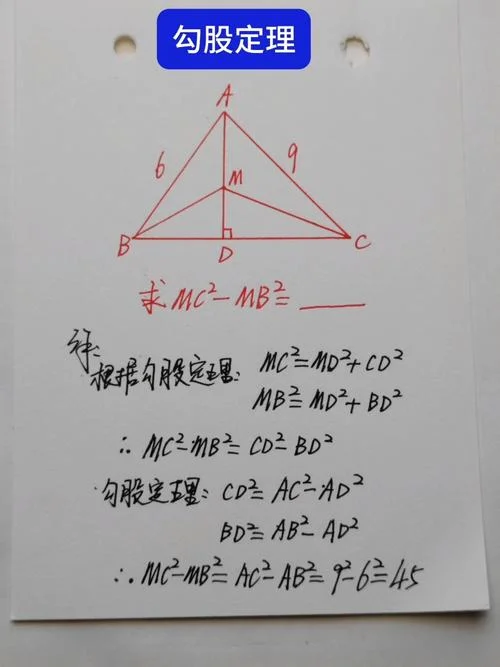 勾股定理
A
6
9
M
B
D
C
求MC²-MB²=____
详:
根据勾股定理: MC²=MD²+CD²
MB²=MD²+BD²
∴ MC²-MB²=CD²-BD²
勾股定理: CD²=AC²-AD²
BD²=AB²-AD²
∴ MC²-MB²=AC²-AB²=9²-6²=45